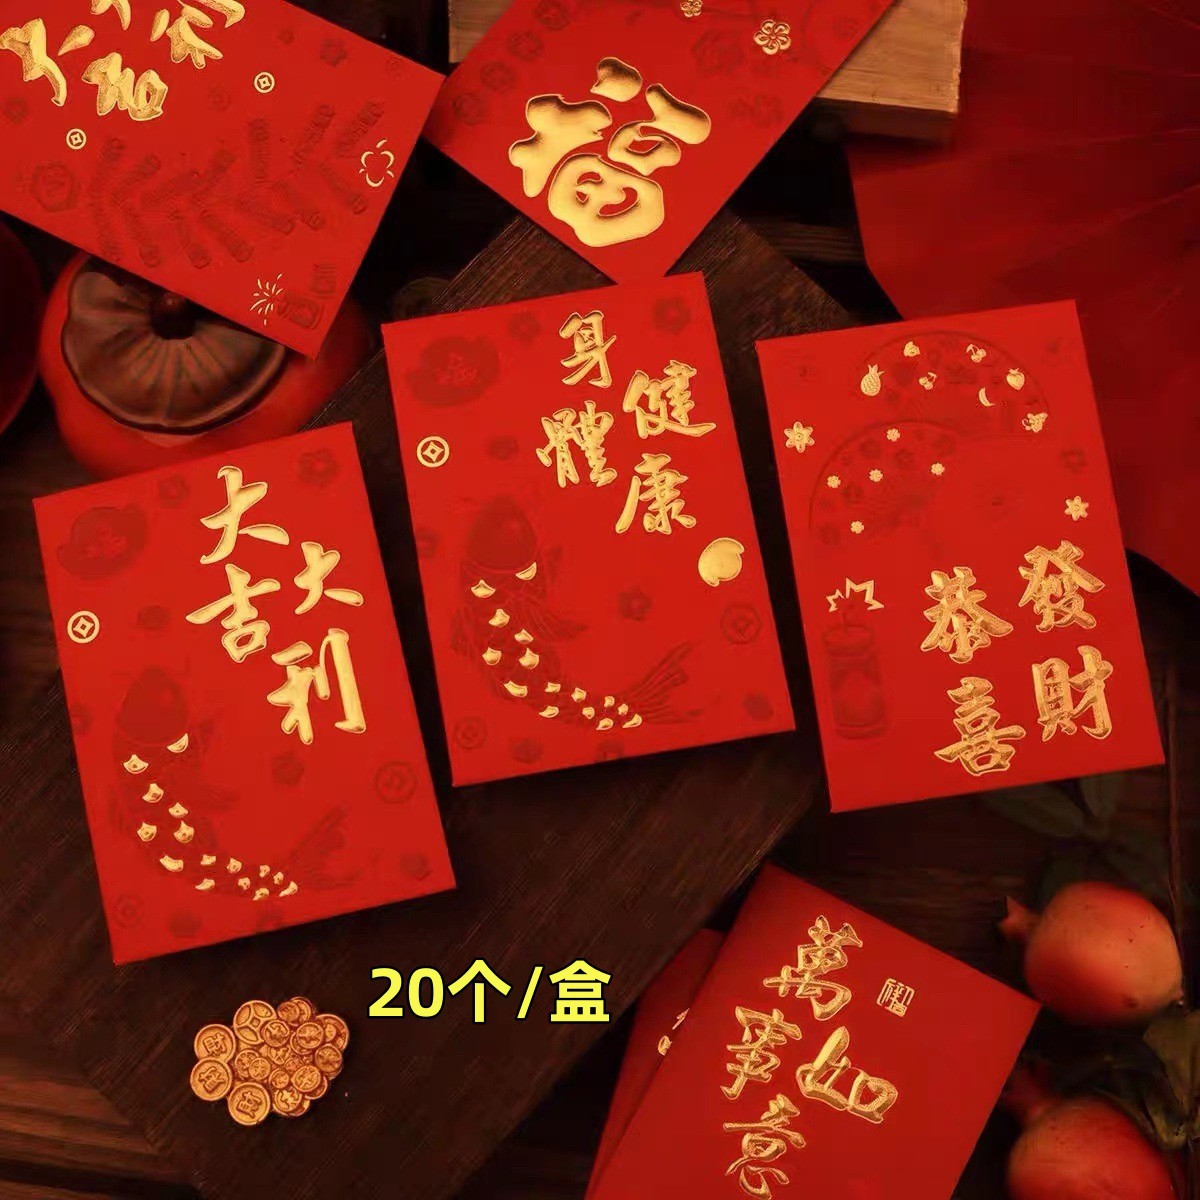 大吉
大利
福
身體
健康
大吉
大利
恭喜
發財
20个/盒
萬事
如意